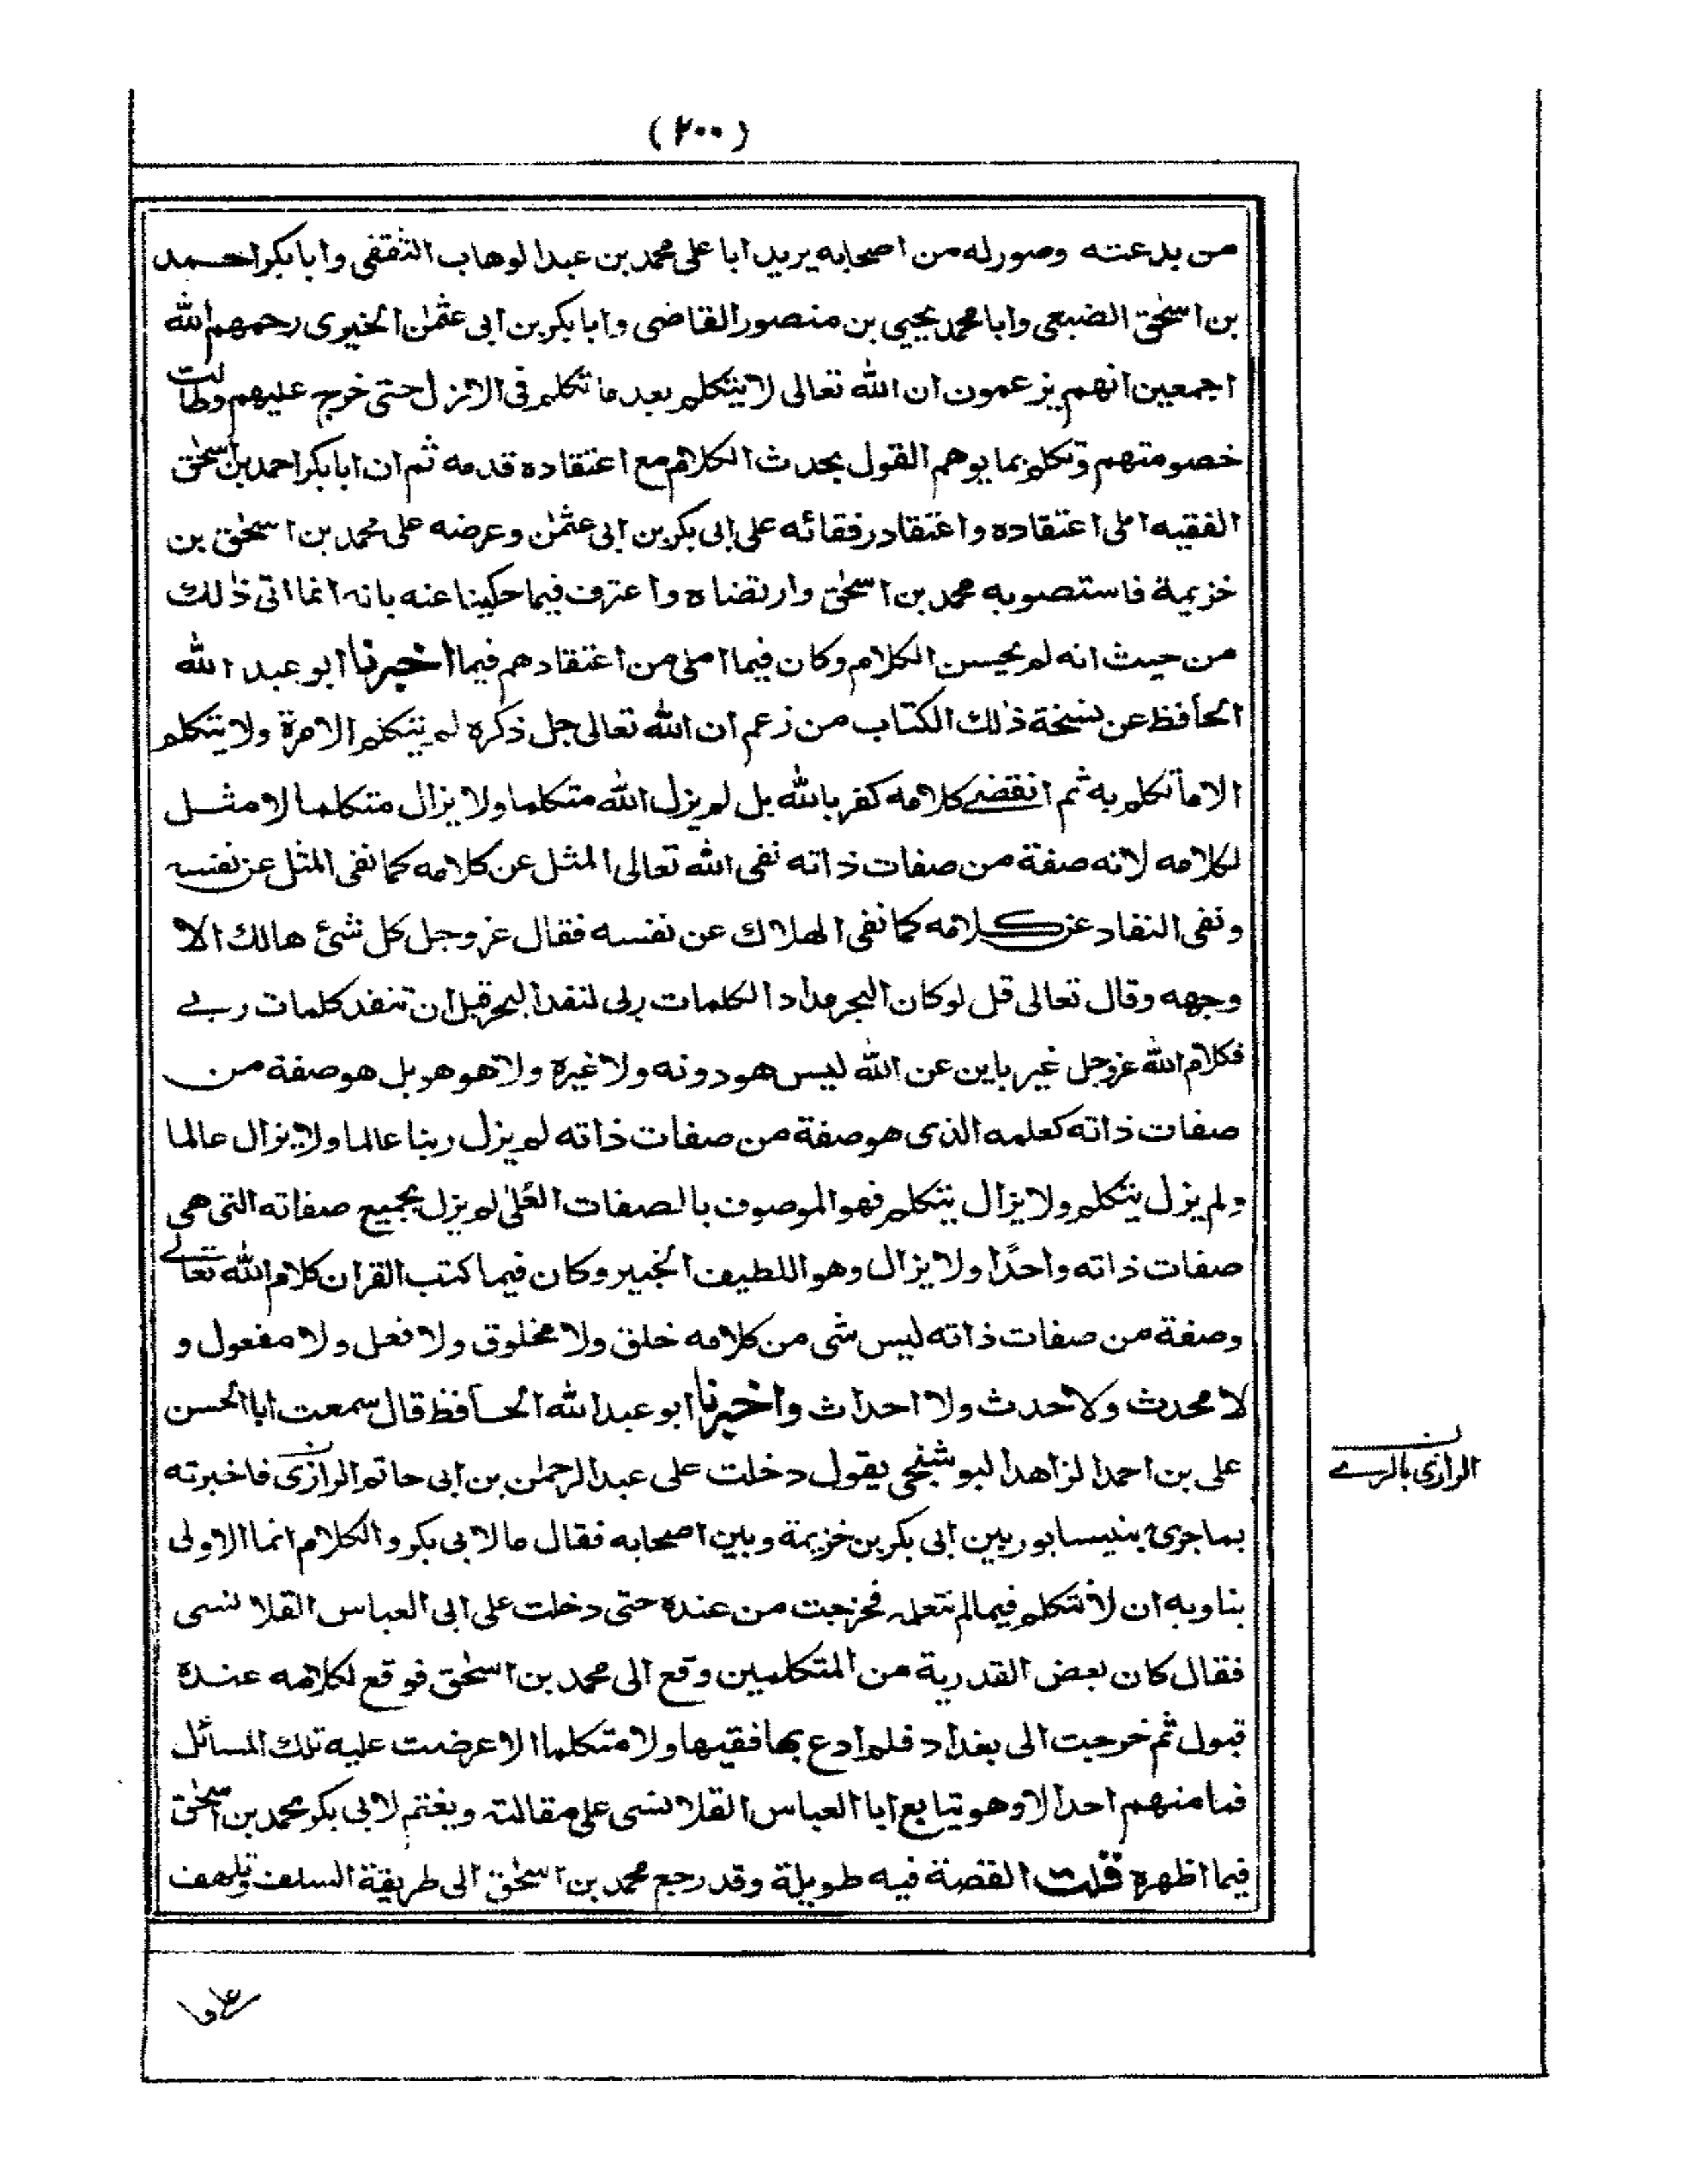 (٢٠٠)
من بدعته وصور له من اصحابه يريد ابا على محمد بن عبد الوهاب الثقفى وابا بكر احمد
بن اسحٰق الضبعى وابا محمد يحيى بن منصور القاضى وابا بكر بن ابى عثمٰن الحيرى رحمهم الله
اجمعين انهم يزعمون ان الله تعالى لا يتكلم بعد ما تكلم فى الازل حتى خرج عليهم وطالت
خصومتهم وتكلم بما يوهم القول بحدث الكلام مع اعتقاده قدمه ثم ان ابا بكر احمد بن اسحٰق
الفقيه املى اعتقاده واعتقاد رفقائه على ابى بكر بن ابى عثمٰن وعرضه على محمد بن اسحٰق بن
خزيمة فاستصوبه محمد بن اسحٰق وارتضاه واعترف فيما حكينا عنه بانه انما اتى ذٰلك
من حيث انه لم يحسن الكلام وكان فيما املى من اعتقادهم فيما اخبرنا ابو عبد الله
الحافظ عن نسخة ذٰلك الكتاب من زعم ان الله تعالى جل ذكره لم يتكلم الا مرة ولا يتكلم
الا ما تكلم به ثم انقضى كلامه كفر بالله بل لم يزل الله متكلما ولا يزال متكلما لا مثل
لكلامه لانه صفة من صفات ذاته نفى الله تعالى المثل عن كلامه كما نفى المثل عن نفسه
ونفى النفاد عن كلامه كما نفى الهلاك عن نفسه فقال عز وجل كل شئ هالك الا
وجهه وقال تعالى قل لو كان البحر مدادا لكلمات ربى لنفد البحر قبل ان تنفد كلمات ربى
فكلام الله عز وجل غير باين عن الله ليس هو دونه ولا غيره ولا هو هو بل هو صفة من
صفات ذاته كعلمه الذى هو صفة من صفات ذاته لم يزل ربنا عالما ولا يزال عالما
ولم يزل يتكلم ولا يزال يتكلم فهو الموصوف بالصفات العُلىٰ لم يزل بجميع صفاته التى هى
صفات ذاته واحدًا ولا يزال وهو اللطيف الخبير وكان فيما كتب القران كلام الله تعالى
وصفة من صفات ذاته ليس شى من كلامه خلق ولا مخلوق ولا فعل ولا مفعول و
لا محدث ولا حدث ولا احداث واخبرنا ابو عبد الله الحافظ قال سمعت ابا الحسن
على بن احمد الزاهد البوشنجى يقول دخلت على عبد الرحمٰن بن ابى حاتم الرازى فاخبرته
بما جرىٰ بنيسابور بين ابى بكر بن خزيمة وبين اصحابه فقال ما لابى بكر والكلام انما الاولى
بنا وبه ان لا نتكلم فيما لم نتعلمه فخرجت من عنده حتى دخلت على ابى العباس القلانسى
فقال كان بعض القدرية من المتكلمين وقع الى محمد بن اسحٰق فوقع لكلامه عنده
قبول ثم خرجت الى بغداد فلم ادع بها فقيها ولا متكلما الا عرضت عليه تلك المسائل
فما منهم احد الا وهو يتابع ابا العباس القلانسى على مقالته ويغتم لابى بكر محمد بن اسحٰق
فيما اظهره قلت القصة فيه طويلة وقد رجع محمد بن اسحٰق الى طريقة السلف وتلهف
الرازى بالرى